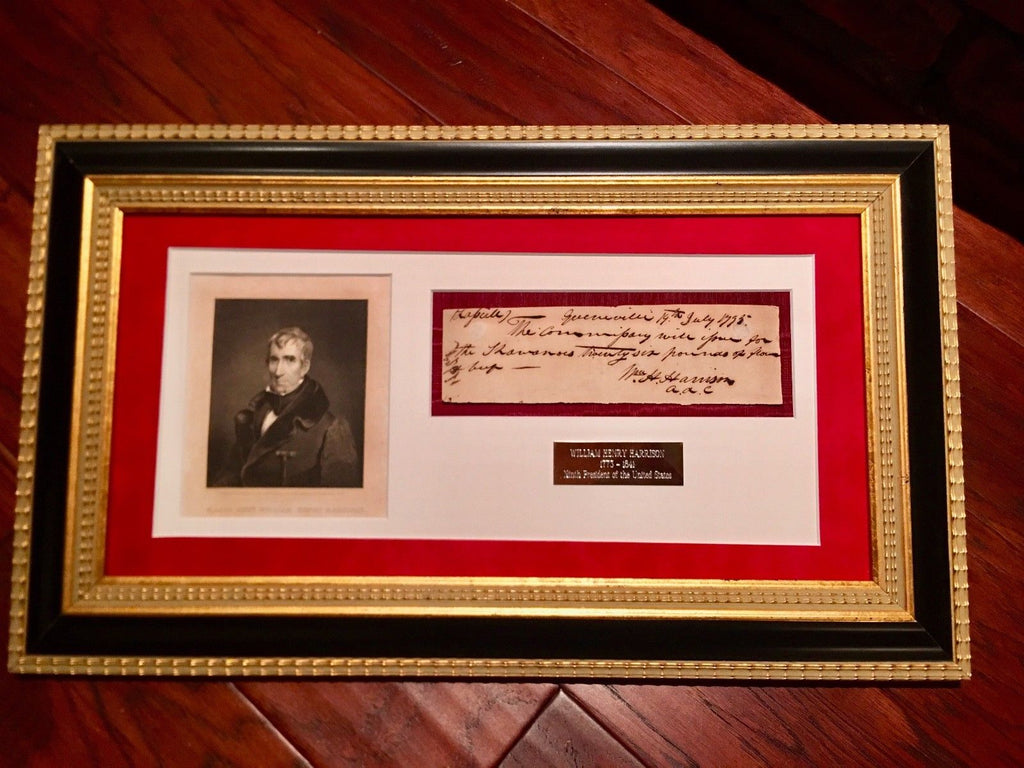 Greenville 19th July 1795.
The Commissary will issue for
the Shawanoes twenty six pounds of flour
& beef —
Wm. H. Harrison
a. a. C
WILLIAM HENRY HARRISON
1773 - 1841
Ninth President of the United States